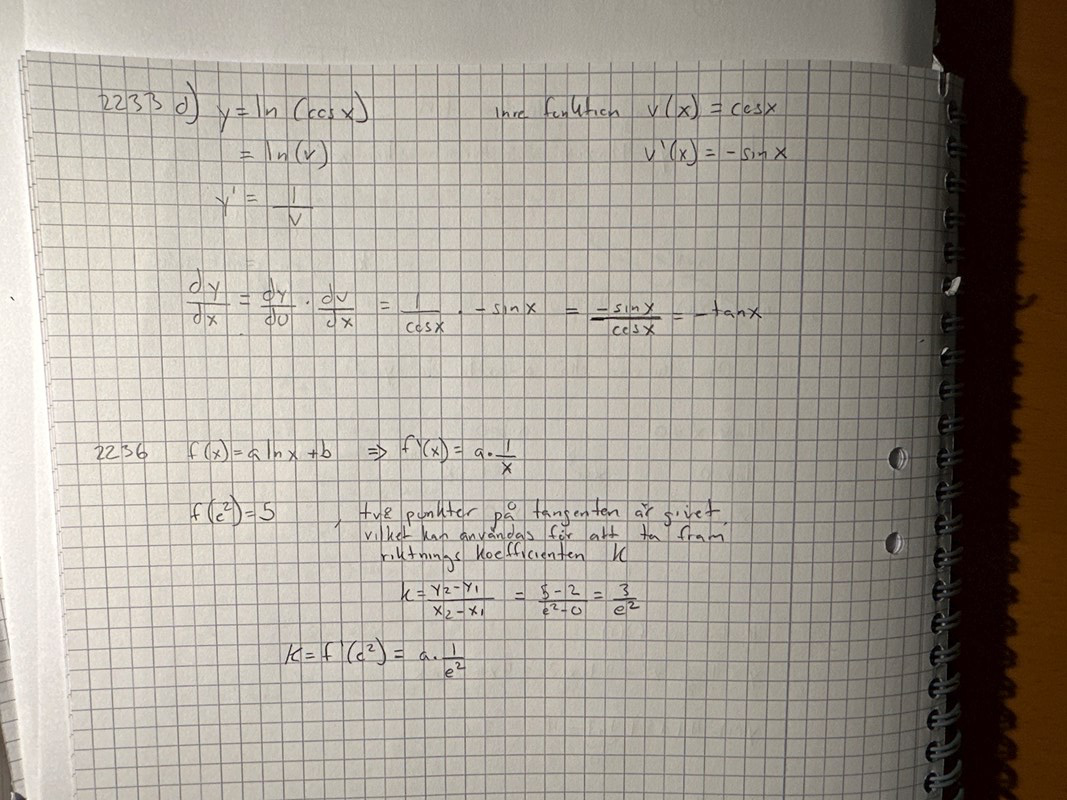 2233 d) y = ln (cosx) inre funktion v(x) = cosx
= ln(v) v'(x) = -sinx
y' = 1/v
dy/dx = dy/dv · dv/dx = 1/cosx · -sinx = -sinx/cosx = -tanx
2236 f(x) = a lnx + b => f'(x) = a · 1/x
f(e²) = 5 , två punkter på tangenten är givet,
vilket kan användas för att ta fram
riktnings koefficienten k
k = y₂-y₁/x₂-x₁ = 5-2/e²-0 = 3/e²
k = f'(e²) = a · 1/e²